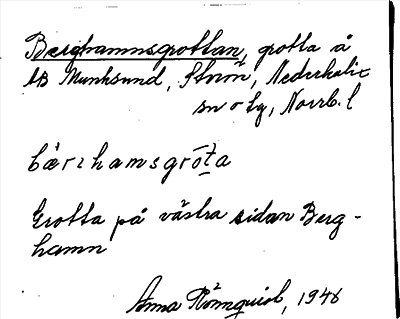 Berghamnsgrottan, grotta å
bB Munksund, Storön, Nederkalix
sn o tg, Norrb. l
bær:hamsgrota
Grotta på västra sidan Berg-
hamn
Anna Rönnquist, 1946